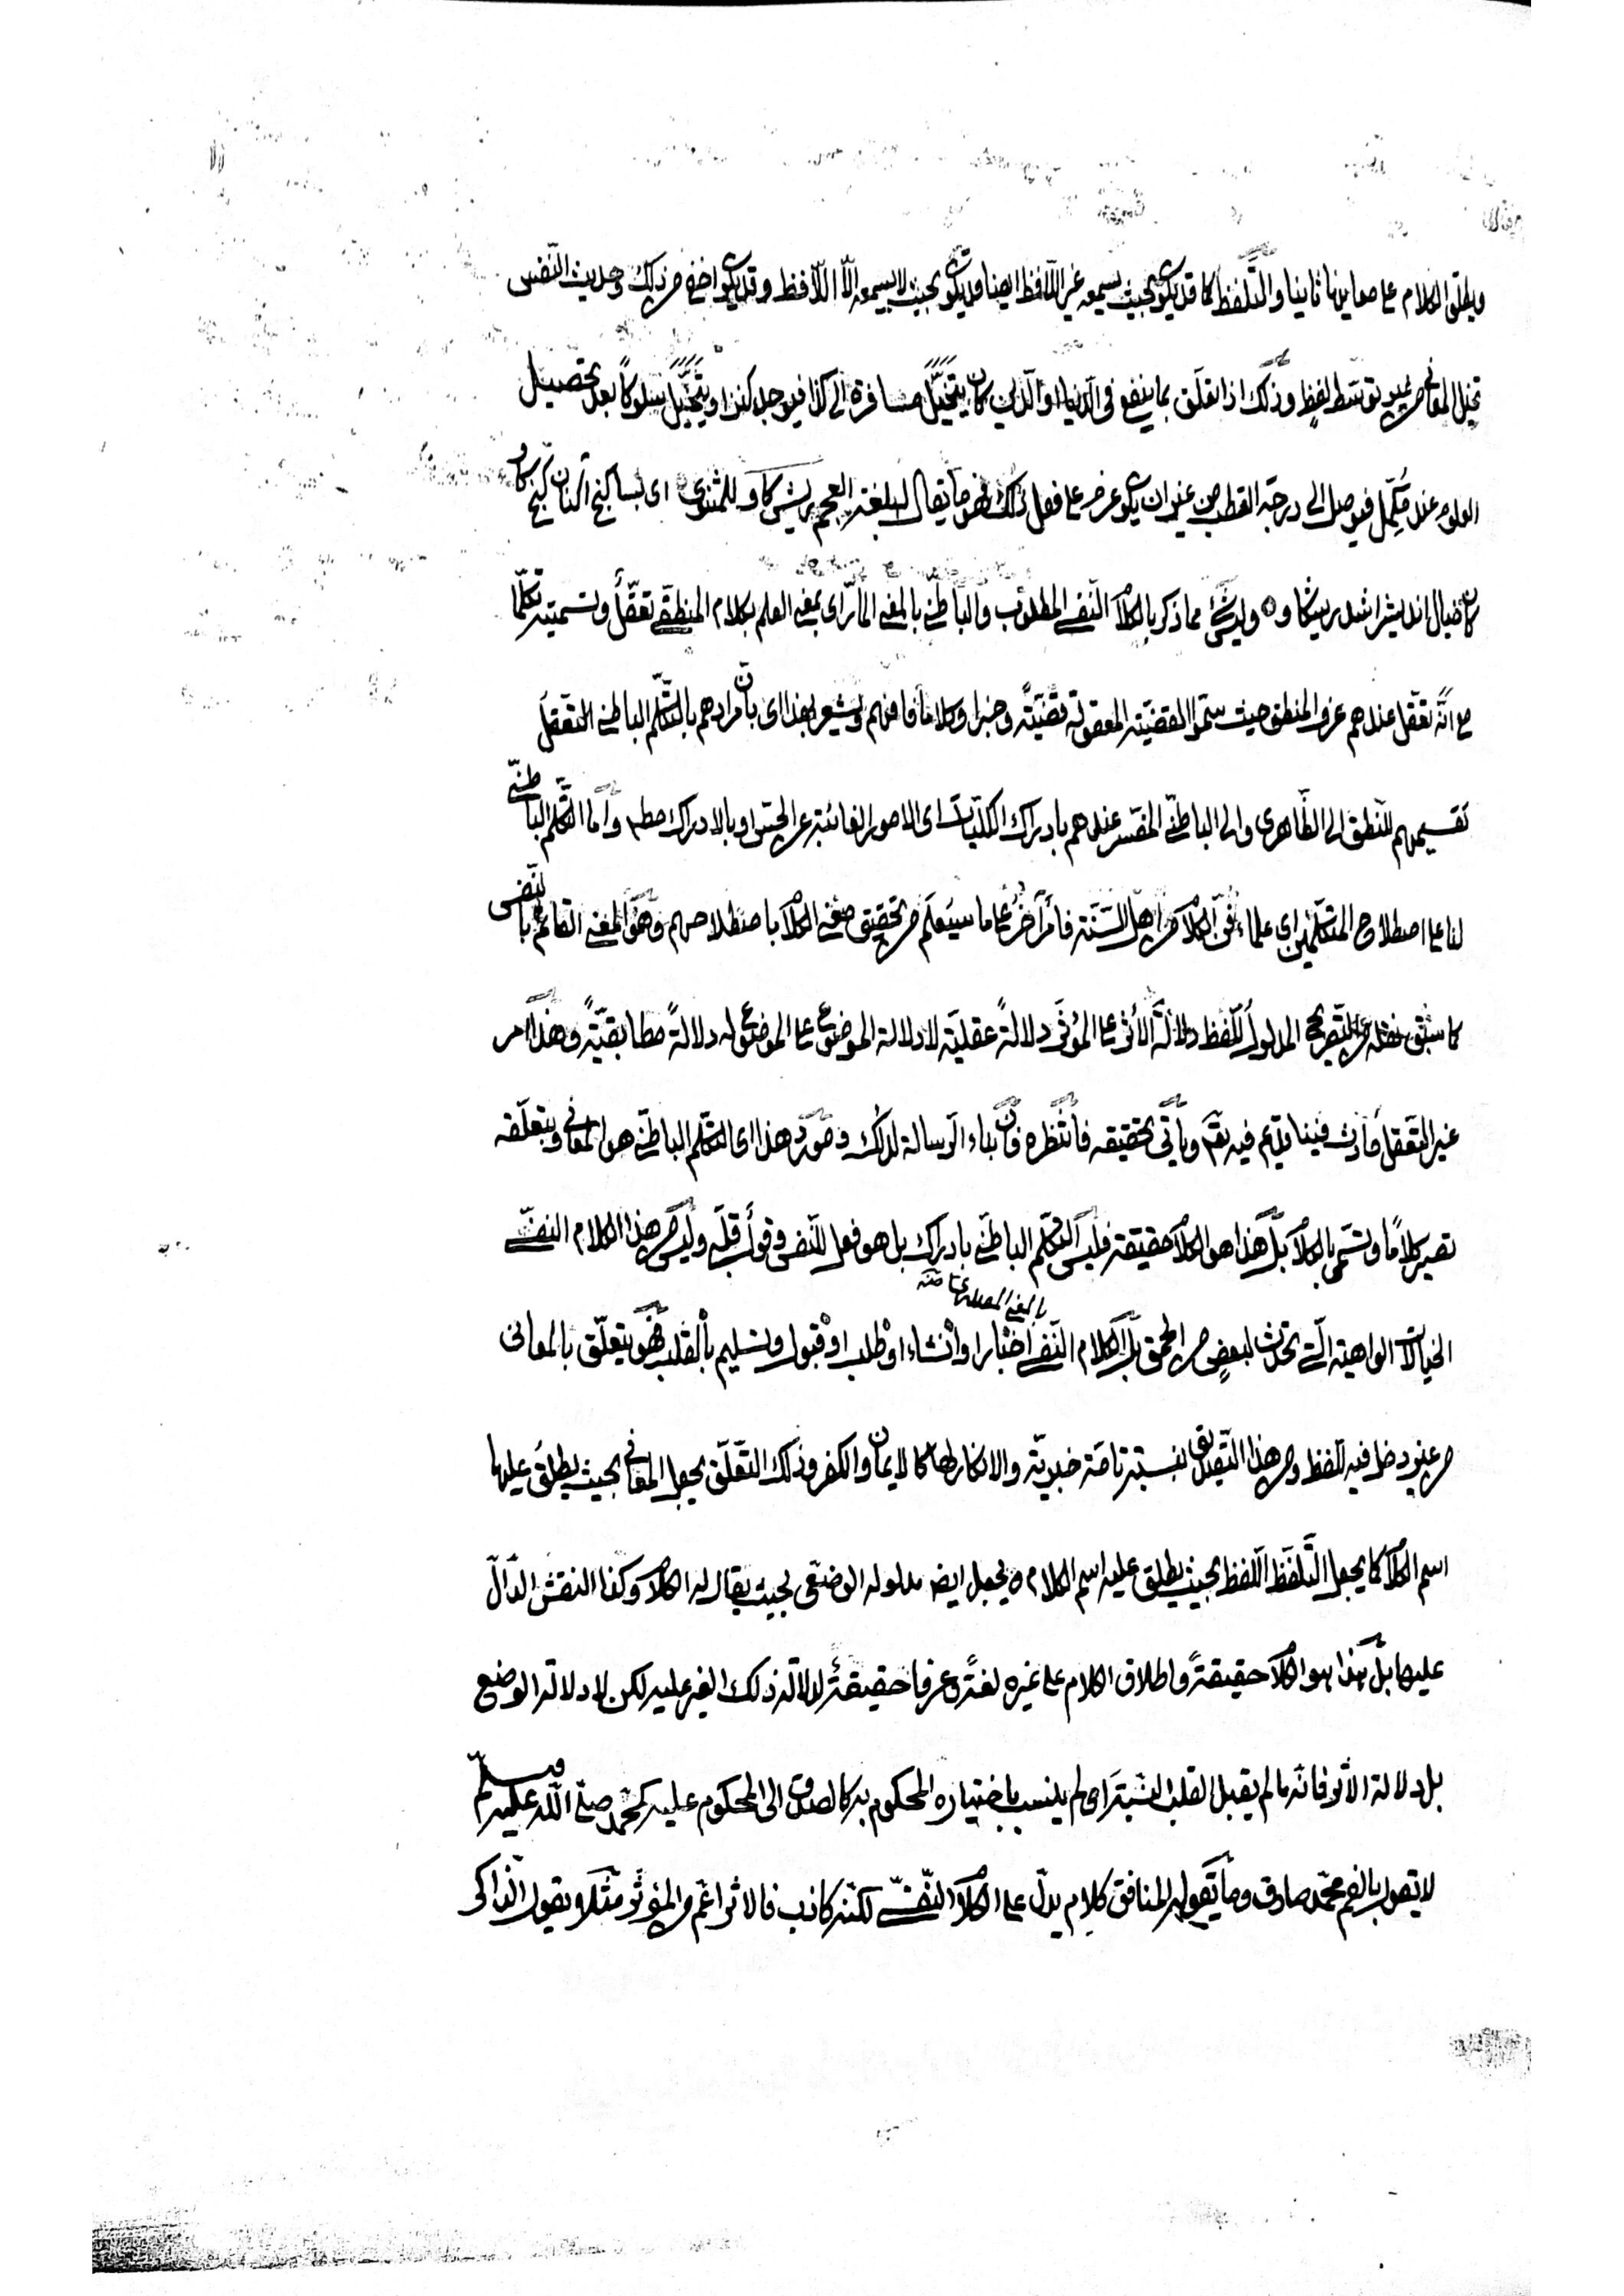 ويطلق الكلام على معانيها ثانيا والتّلفظ كما قد يكون بحيث يسمعه غير اللّافظ ايضا وقد يكون بحيث لا يسمعه الّا اللّافظ وقد يكون اخفى من ذلك وحديث النّفس
تخيل المعاني من غير توسّط لفظ وذلك اذا تعلّق بما ينفع في الدّنيا او الدّين كان يتخيّل مسافرة الى كذا فيوجد كذا او يتخيّل سلوكًا بعد تحصيل
العلوم عند مكمّل فيوصل الى درجة القطب من غير ان يكون عزم على فعل ذلك فهو ما يقال له بلغة العجم بريش كاو للمثنوى اى بسا كنج آكنان كنج كاو
كان خيال انديش را شد ريش كاو وليس شئ مما ذكر بالكلام النّفسى المطلوب والباطنىّ بالمعنى المارّ اى بمعنى العلم بكلام المنطقى تعقّل وتسميته تكلّما
مع انّه تعقّل عندهم عرف المنطق حيث سمّوا القضيّة المعقولة قضيّة وخبرا وكلاما فافهم ويشعر بهذا اى بان مرادهم بالتّكلّم الباطنى التعقّل
تقسيمهم للنّطق الى الظّاهرى والى الباطنىّ المفسر عندهم بادراك الكلّيات اى الامور الغائبة عن الحسّ او بالادراك مطم وأمّا التّكلّم الباطنىّ
لنا على اصطلاح المتكلّمين اى علماء فنّ الكلام من اهل السّنّة فأمر آخر على ما سيعلم من تحقيق معنى الكلام باصطلاحهم وهو المعنى القائم بالنّفس
كما سبق نقله عن التّصريح المدلول للّفظ دلالة الأثر على المؤثّر دلالةً عقليّة لا دلالة الموضوع على الموضوع له دلالةً مطابقيّةً وهذا امر
غير التعقل حادث فينا قديم فيه تعم ويأتى تحقيقه فانتظره فانّ بناء الرسالة لذلك ومورد هذا اى التكلم الباطنىّ هو المعانى وبتعلّقه
تصير كلامًا وتسمّى بالكلام بل هذا هو الكلام حقيقة فليس التّكلّم الباطنىّ بادراك بل هو فعل للنّفس وقول قلبىّ وليس من هذا الكلام النفسىّ
بالمعنى المصدرى منه
الخيالات الواهية الّتى تحدث لبعضٍ من الحمق بل الكلام النّفسى اخبار او انشاء او طلب او قبول وتسليم بالقلب فهو يتعلّق بالمعانى
من غير دخل فيه للّفظ ومن هذا التّصديق بنسبة تامّة خبريّة والانكار لها كالايمان والكفر وذلك التّعلّق يجعل المعانى بحيث يطلق عليها
اسم الكلام كما يجعل التّلفّظ اللّفظ بحيث يطلق عليه اسم الكلام ويجعل ايضه مدلوله الوضعى بحيث يقال له الكلام وكذا النقش الدّالّ
عليها بل هذا هو الكلام حقيقةً واطلاق الكلام على غيره لغةً وعرفا حقيقةً لدلالة ذلك الغير عليه لكن لا دلالة الوضع
بل دلالة الأثر فانّه ما لم يقبل القلب النّسبة اى لم ينسب باختياره المحكوم به كالصدق الى المحكوم عليه كمحمّد صلّى اللّه عليه وسلّم
لا يقول بالفم محمّد صادق وما يقوله المنافق كلام يدلّ على الكلام النّفسىّ لكنّه كاذب فالاثر اعمّ من المؤثّر مثلا ويقول الذاكر